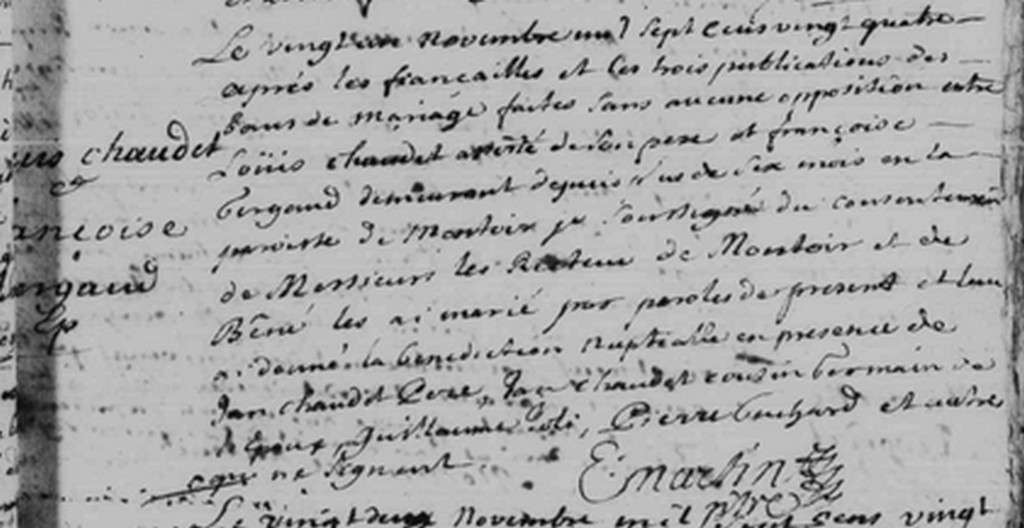 Le vingt un novembre mil sept cens vingt quatre
après les françailles et les trois publications des
bans de mariage faites sans aucune opposition entre
Loüis chaudet assisté de son pere et françoise
Bergaud demeurant depuis plus de six mois en la
paroisse de montoir je soussigné du consentement
de Messieurs les Recteur de Montoir et de
Béné les ai marié par paroles de present et leur
ai donné la benediction nuptialle en presence de
Jan chaudet Pere, Jan chaudet cousin Germain de
l'Epoux, Guillaume, Pierre Guchard et autre
qui ne signent
E martin
ptre
Le vingt deux novembre mil sept cens vingt
chaudet
&
ançoise
Bergaud
Ep